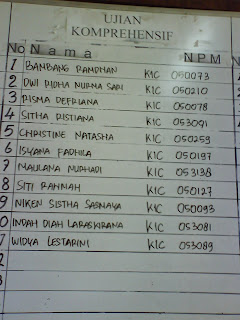 UJIAN
KOMPREHENSIF
No Nama NPM
1 BAMBANG RAMDHAN KIC 050073
2 DWI RIDHA NURMA SARI KIC 050210
3 RISMA DEFRIANA KIC 050078
4 SITHA RISTIANA KIC 053091
5 CHRISTINE NATASHA KIC 050259
6 ISYANA FADHILA KIC 050197
7 MAULANA NURHADI KIC 053138
8 SITI RAHMAH KIC 050127
9 NIKEN SISTHA SASNAYA KIC 050093
0 INDAH DIAH LARASKIRANA KIC 053081
WIDYA LESTARINI KIC 053089
2
3
0